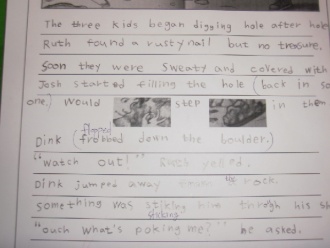 The three kids began digging hole after hole
Ruth found a rusty nail but no treasure.
Soon they were sweaty and covered with
Josh started filling the hole (back in so
one.) Would step in the
flopped
Dink (frobbed down the boulder.)
"Watch out!" Ruth yelled.
Dink jumped away from the rock.
something was stiking him through his sh
"ouch what's poking me?" he asked.